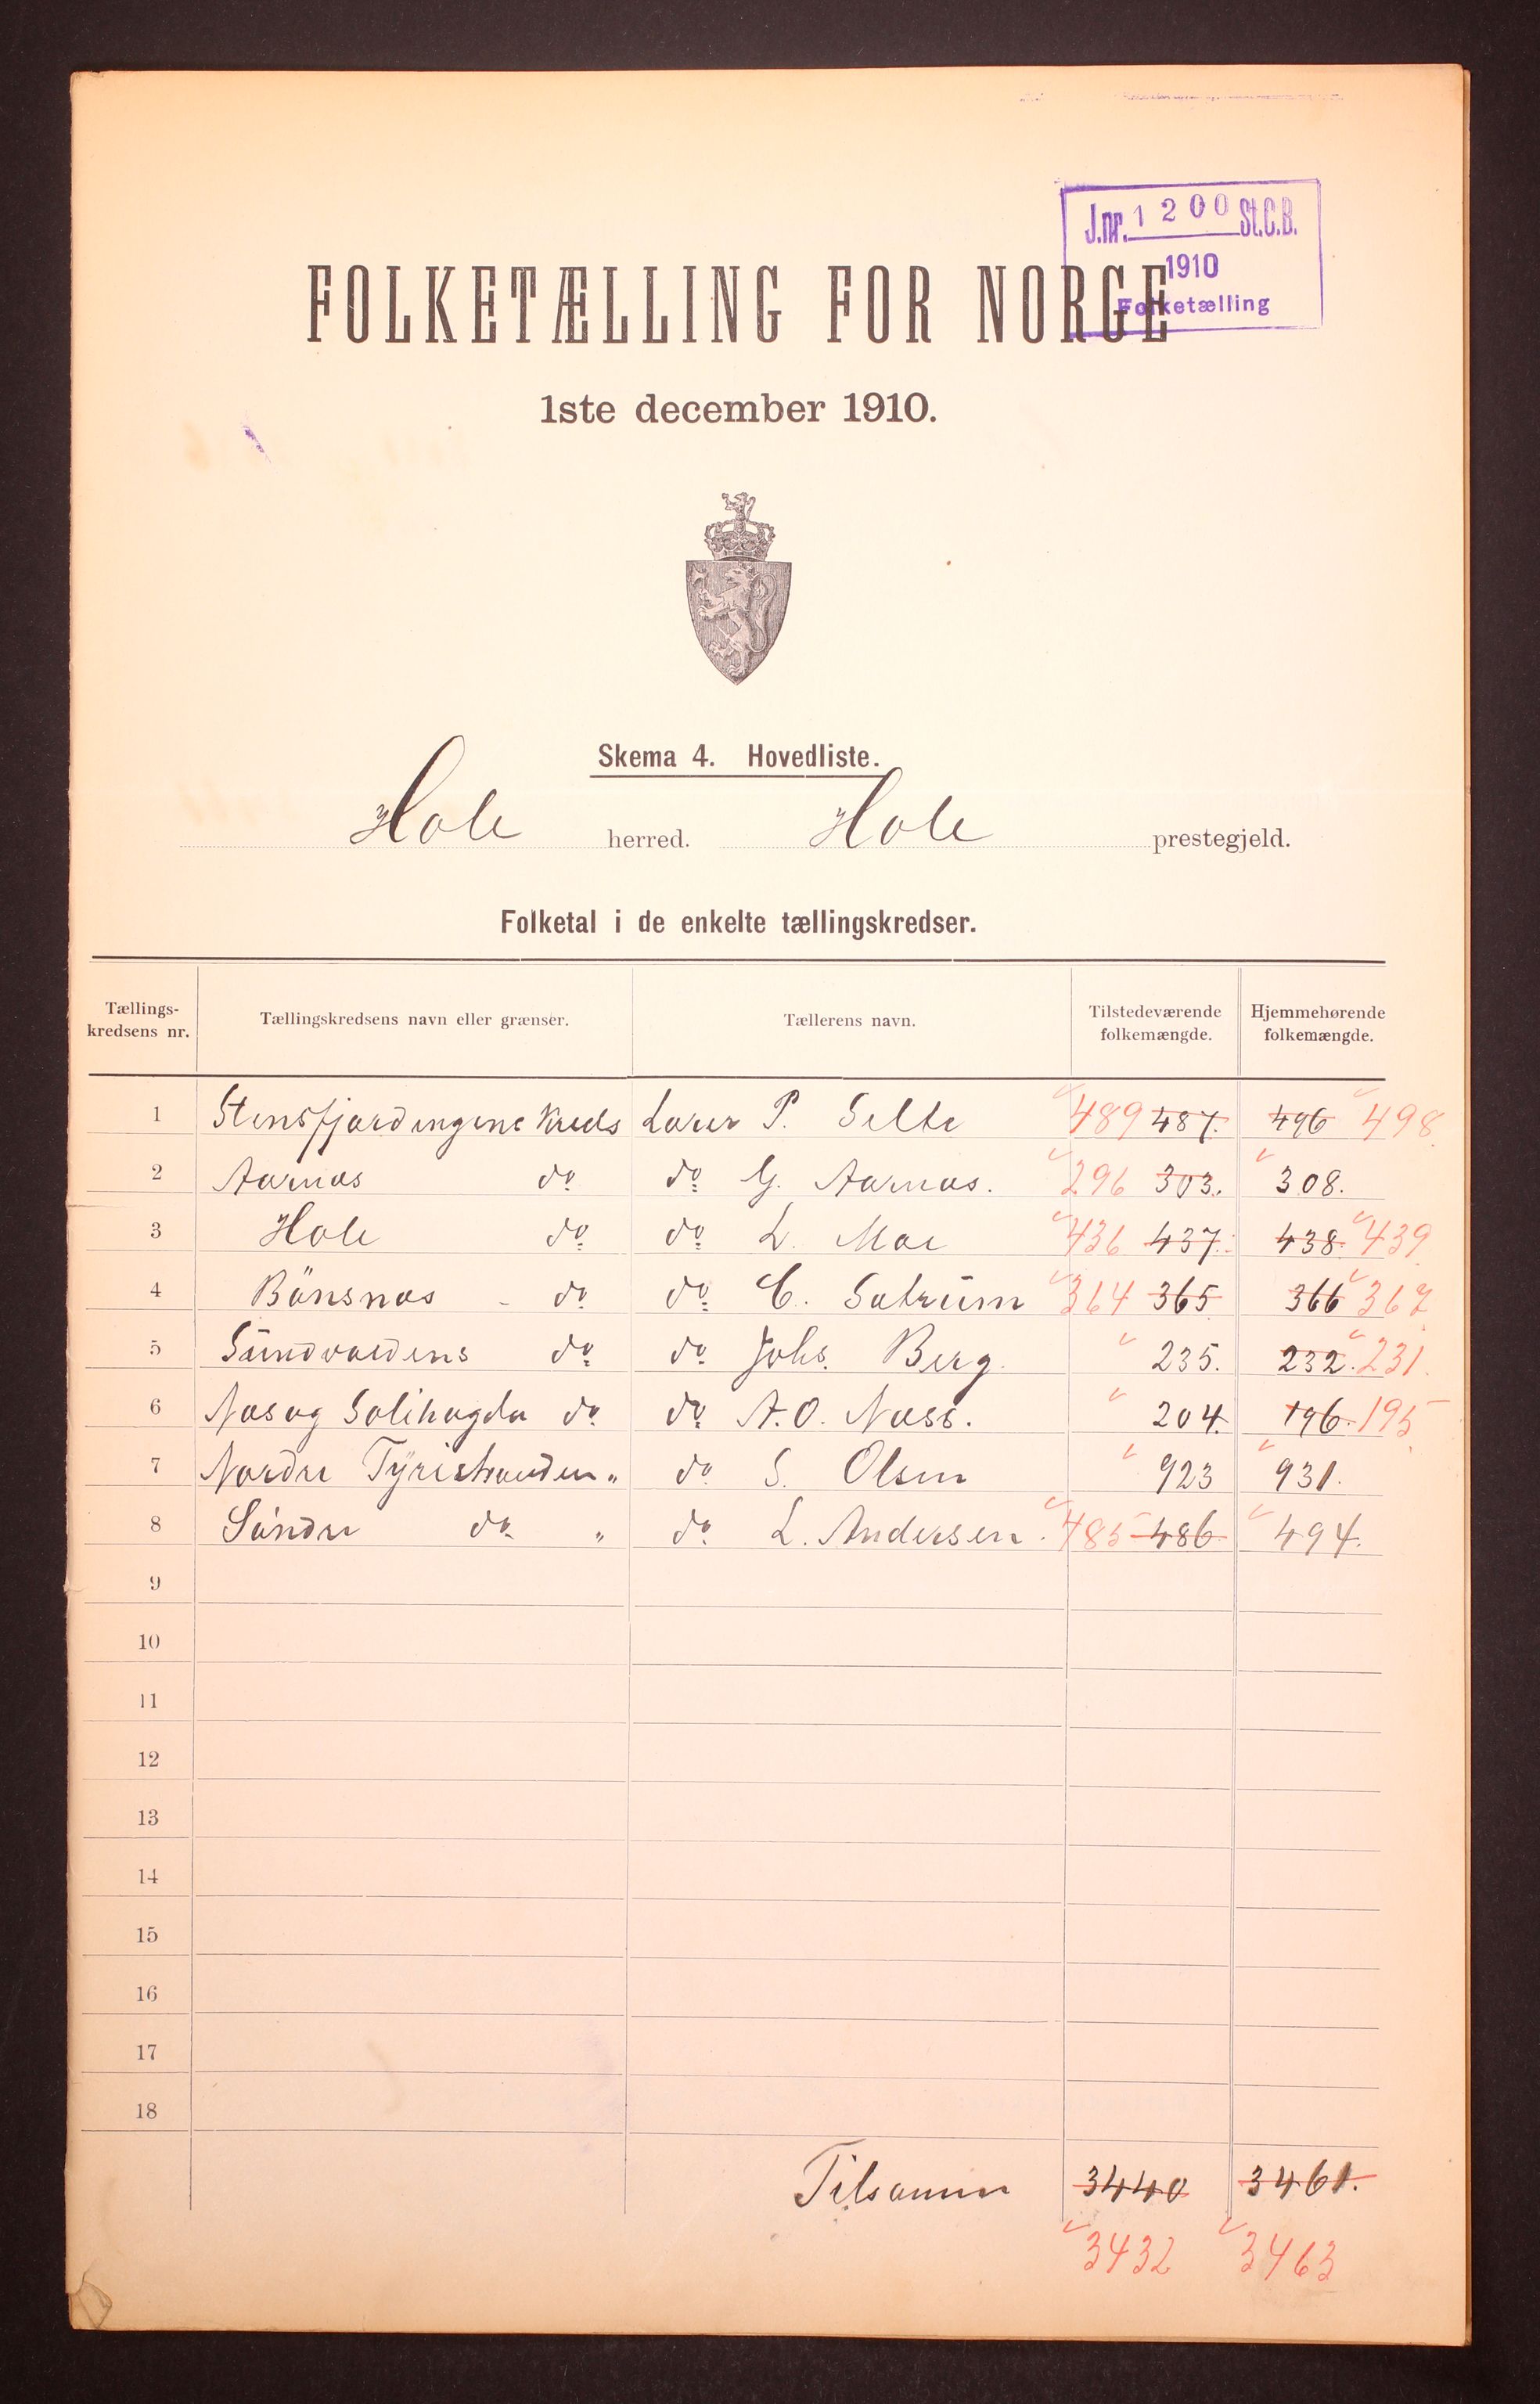 J.nr. 1200 St.C.B.
1910
Folketælling
FOLKETÆLLING FOR NORGE
1ste december 1910.
Skema 4. Hovedliste.
Hole herred. Hole prestegjeld.
Folketal i de enkelte tællingskredser.
Tællings-kredsens nr. Tællingskredsens navn eller grænser. Tællerens navn. Tilstedeværende folkemængde. Hjemmehørende folkemængde.
1 Stensfjardingens Kreds Lærer P. Selte 489 487. 496 498
2 Aarnæs do do G. Aarnæs. 296 303. 308.
3 Hole do do L. Moe 436 437. 438. 439
4 Bönsnæs - do do C. Sætrum 364 365 366 367
5 Sundvoldens do do Johs. Berg 235. 232. 231.
6 Næs og Solihøgda do do A. O. Næss. 204. 196. 195
7 Nordre Tyristranden " do S. Olsen 923 931.
8 Söndre do " do L. Andersen. 485 486 494.
9
10
11
12
13
14
15
16
17
18
Tilsamm 3440 3461.
3432 3463